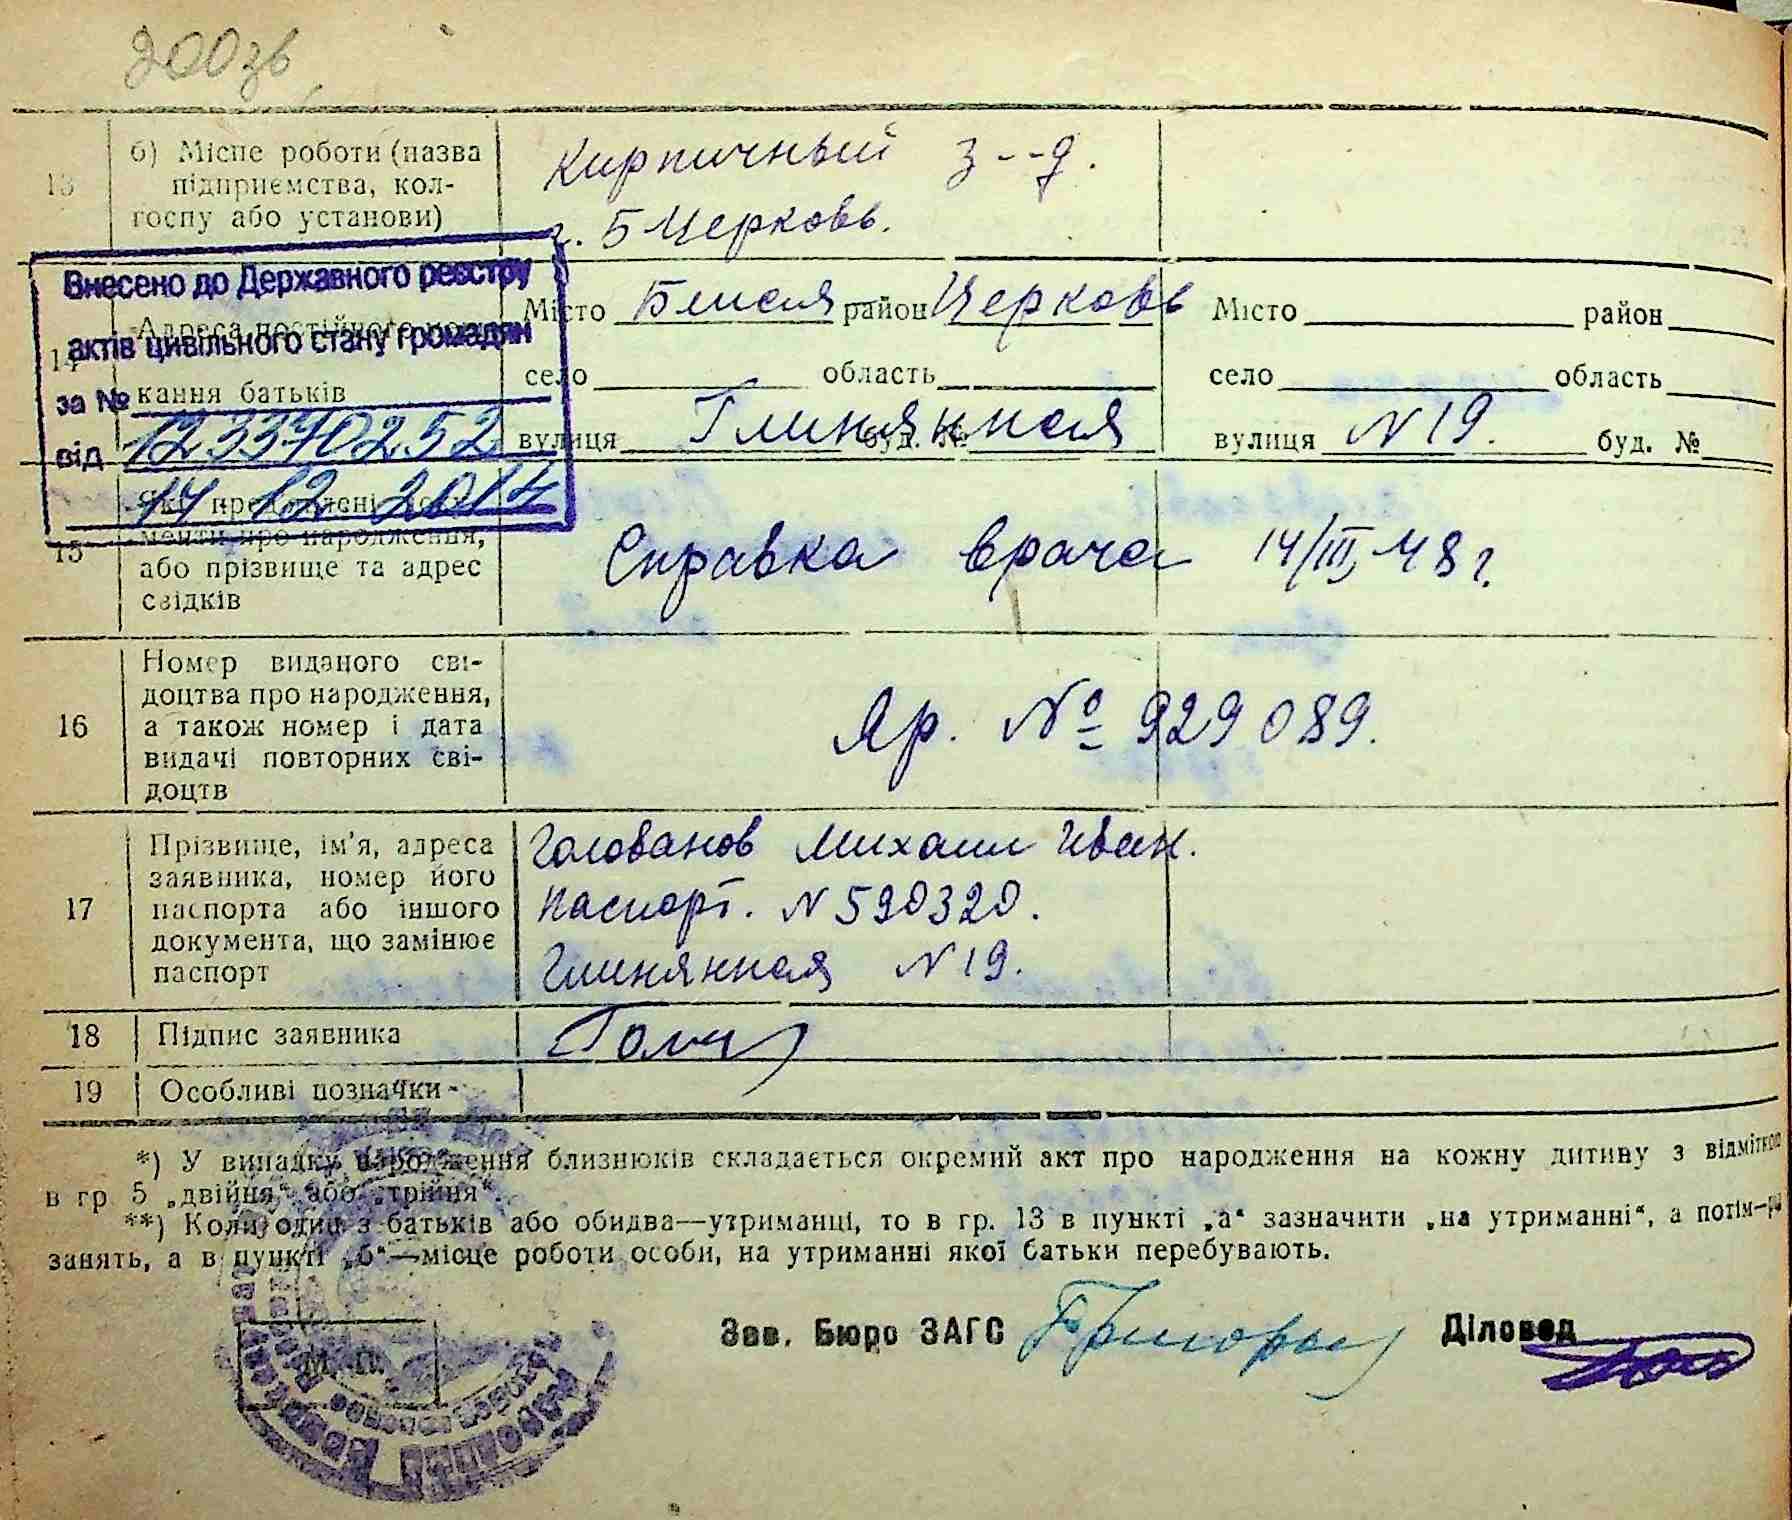 200зв
13
б) Місце роботи (назва
підприємства, кол-
госпу або установи)
Кирпичный з--д.
г. Б Церковь.
Внесено до Державного реєстру
актів цивільного стану громадян
за №
123370252
від
14 12 2014
14
Адреса постійного
кання батьків
Місто Белая район Церковь
село область
вулиця Глинянная буд. №
Місто район
село область
вулиця N 19. буд. №
15
Які
менти про народження,
або прізвище та адрес
свідків
Справка врача 14/III 48 г.
16
Номер виданого сві-
доцтва про народження,
а також номер і дата
видачі повторних сві-
доцтв
Яр. № 929089.
17
Прізвище, ім'я, адреса
заявника, номер його
паспорта або іншого
документа, що замінює
паспорт
Голованов Михаил Иван.
Паспорт. N 590320.
Глинянная N 19.
18
Підпис заявника
19
Особливі позначки
*) У випадку народження близнюків складається окремий акт про народження на кожну дитину з відміткою
в гр 5 „двійня“ або „трійня“.
**) Коли один з батьків або обидва—утриманці, то в гр. 13 в пункті „а“ зазначити „на утриманні“, а потім—
занять, а в пункті „б“—місце роботи особи, на утриманні якої батьки перебувають.
М. П.
Зав. Бюро ЗАГС
Діловод